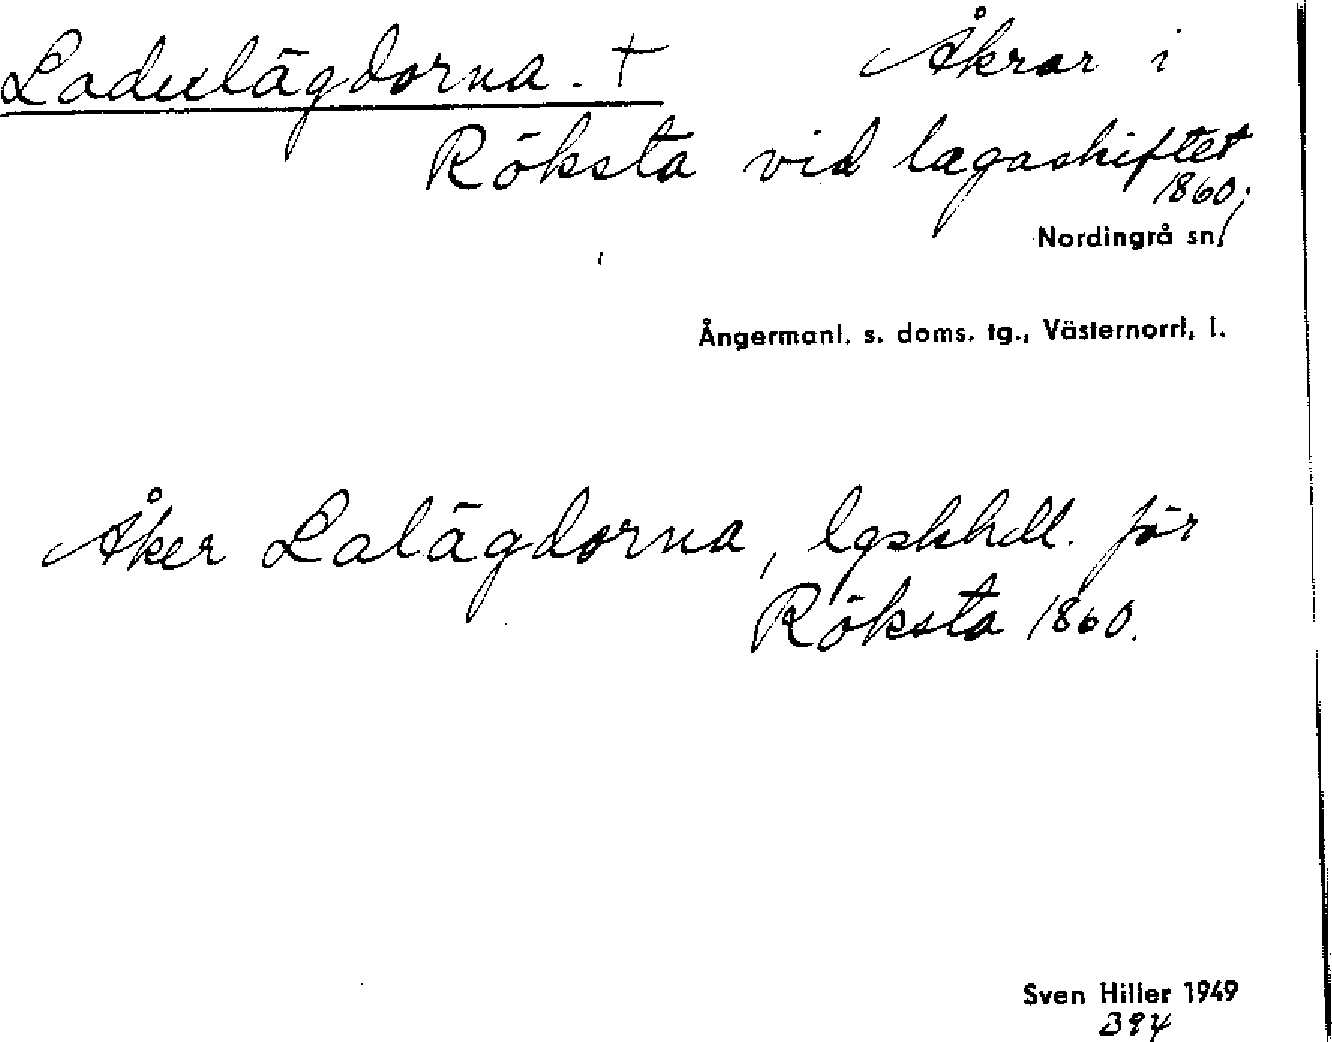 Ladulägdorna. † Åkrar i
Röksta vid lagaskiftet
1860,
Nordingrå sn,
Ångermanl. s. doms. tg., Västernorrl. l.
Åker Lalägdorna, lgskhdl. för
Röksta 1860.
Sven Hiller 1949
394